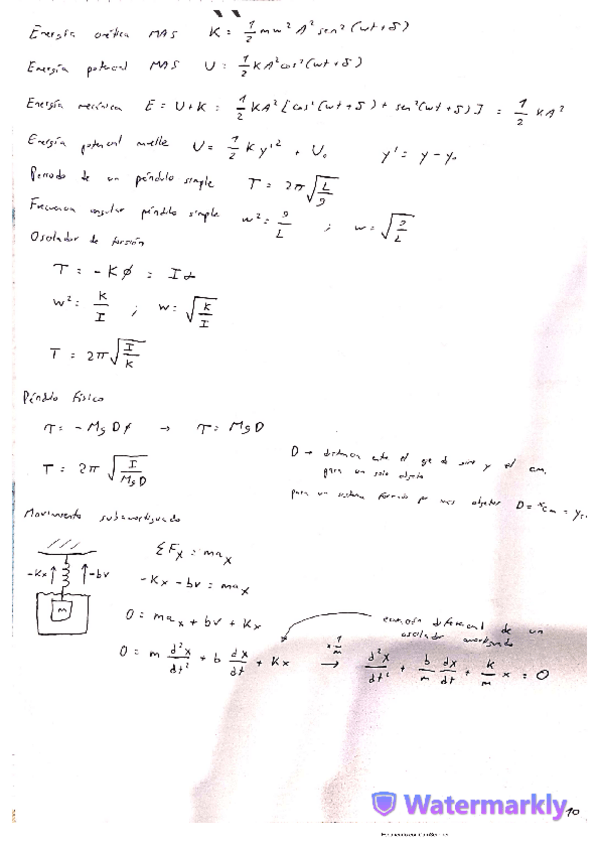 Energía cinética MAS K = 1/2 mw² A² sen² (wt + δ)
Energía potencial MAS U = 1/2 KA² cos² (wt + δ)
Energía mecánica E = U + K = 1/2 KA² [cos² (wt + δ) + sen² (wt + δ)] = 1/2 KA²
Energía potencial muelle U = 1/2 K y'² + U₀ y' = y - y₀
Periodo de un péndulo simple T = 2π √(L/g)
Frecuencia angular péndulo simple w² = g/L ; w = √(g/L)
Oscilador de torsión
τ = -K ϕ = I α
w² = K/I ; w = √(K/I)
T = 2π √(I/K)
Péndulo físico
τ = -MgDϕ → τ = MgD
D → distancia entre el eje de giro y el cm.
para un solo objeto
T = 2π √(I/MgD)
para un sistema formado por mas objetos D = x cm = y
Movimiento subamortiguado
ΣFx = max
-Kx -bv
-Kx - bv = max
m
0 = max + bv + Kx
ecuación diferencial de un
oscilador amortiguado
0 = m d²x/dt² + b dx/dt + Kx x 1/m → d²x/dt² + b/m dx/dt + K/m x = 0
Watermarkly
10